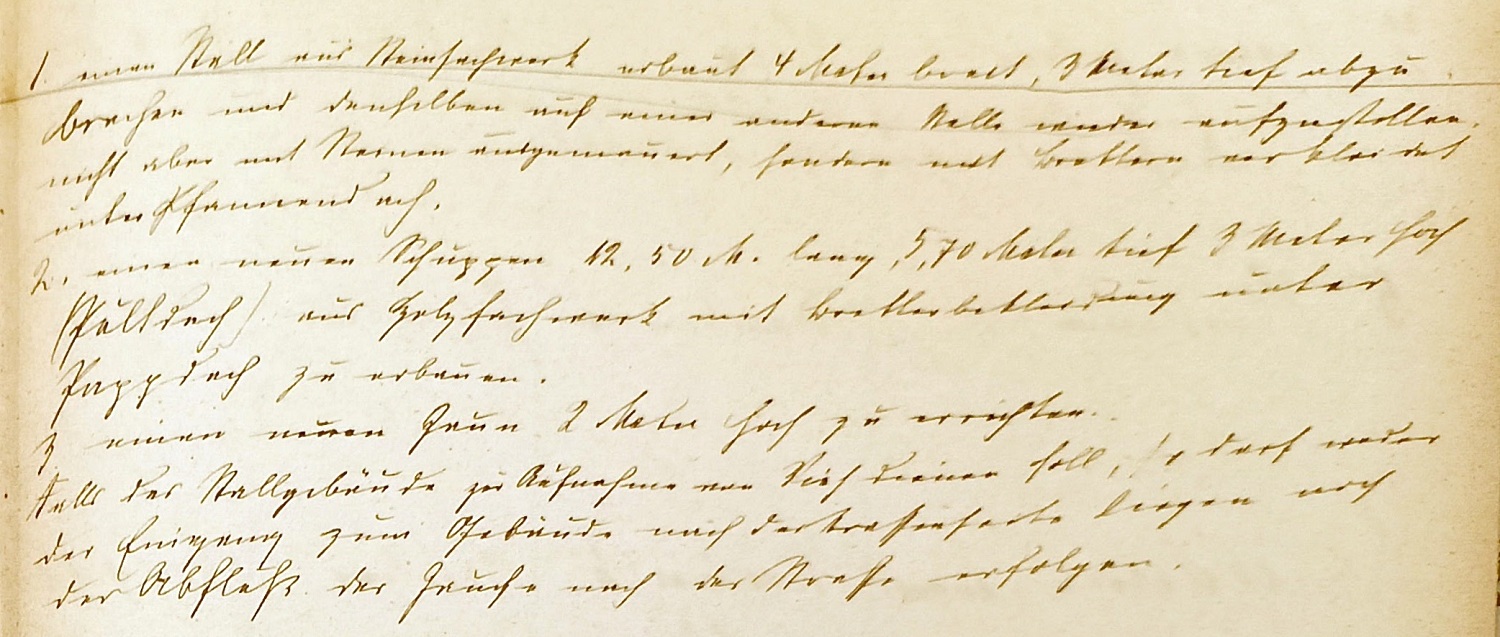 1. einen Stall aus Steinfachwerk erbaut 4 Meter breit, 3 Meter tief abzu
brechen und denselben auf einer anderen Stelle wieder aufzustellen,
nicht aber mit Steinen ausgemauert, sondern mit Brettern verkleidet
unter Pfannendach.
2. einen neuen Schuppen 12,50 M. lang, 5,70 Meter tief 3 Meter hoch
(Pultdach) aus Holzfachwerk mit Bretterbekleidung unter
Pappdach zu erbauen.
3 einen neuen Zaun 2 Meter hoch zu errichten.
Falls das Stallgebäude zur Aufnahme von Vieh dienen soll, so darf weder
der Eingang zum Gebäude nach der Strassenseite liegen noch
der Abfluß der Jauche nach der Strasse erfolgen.